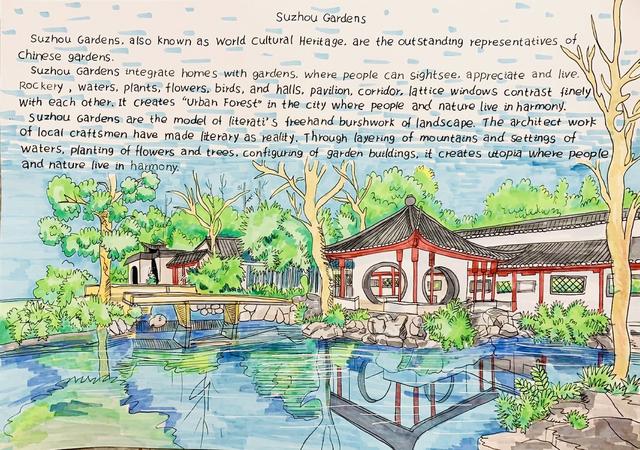 Suzhou Gardens
Suzhou Gardens. also known as World Cultural Heritage. are the outstanding representatives of
Chinese gardens.
Suzhou Gardens integrate homes with gardens. where people can sightsee. appreciate and live.
Rockery, waters, plants, flowers, birds, and halls, pavilion, corridor, lattice windows contrast finely
with each other. It creates "Urban Forest" in the city where people and nature live in harmony.
Suzhou Gardens are the model of literati's freehand burshwork of landscape. The architect work
of local craftsmen have made literary as reality. Through layering of mountains and settings of
waters, planting of flowers and trees, configuring of garden buildings, it creates utopia where people
and nature live in harmony.